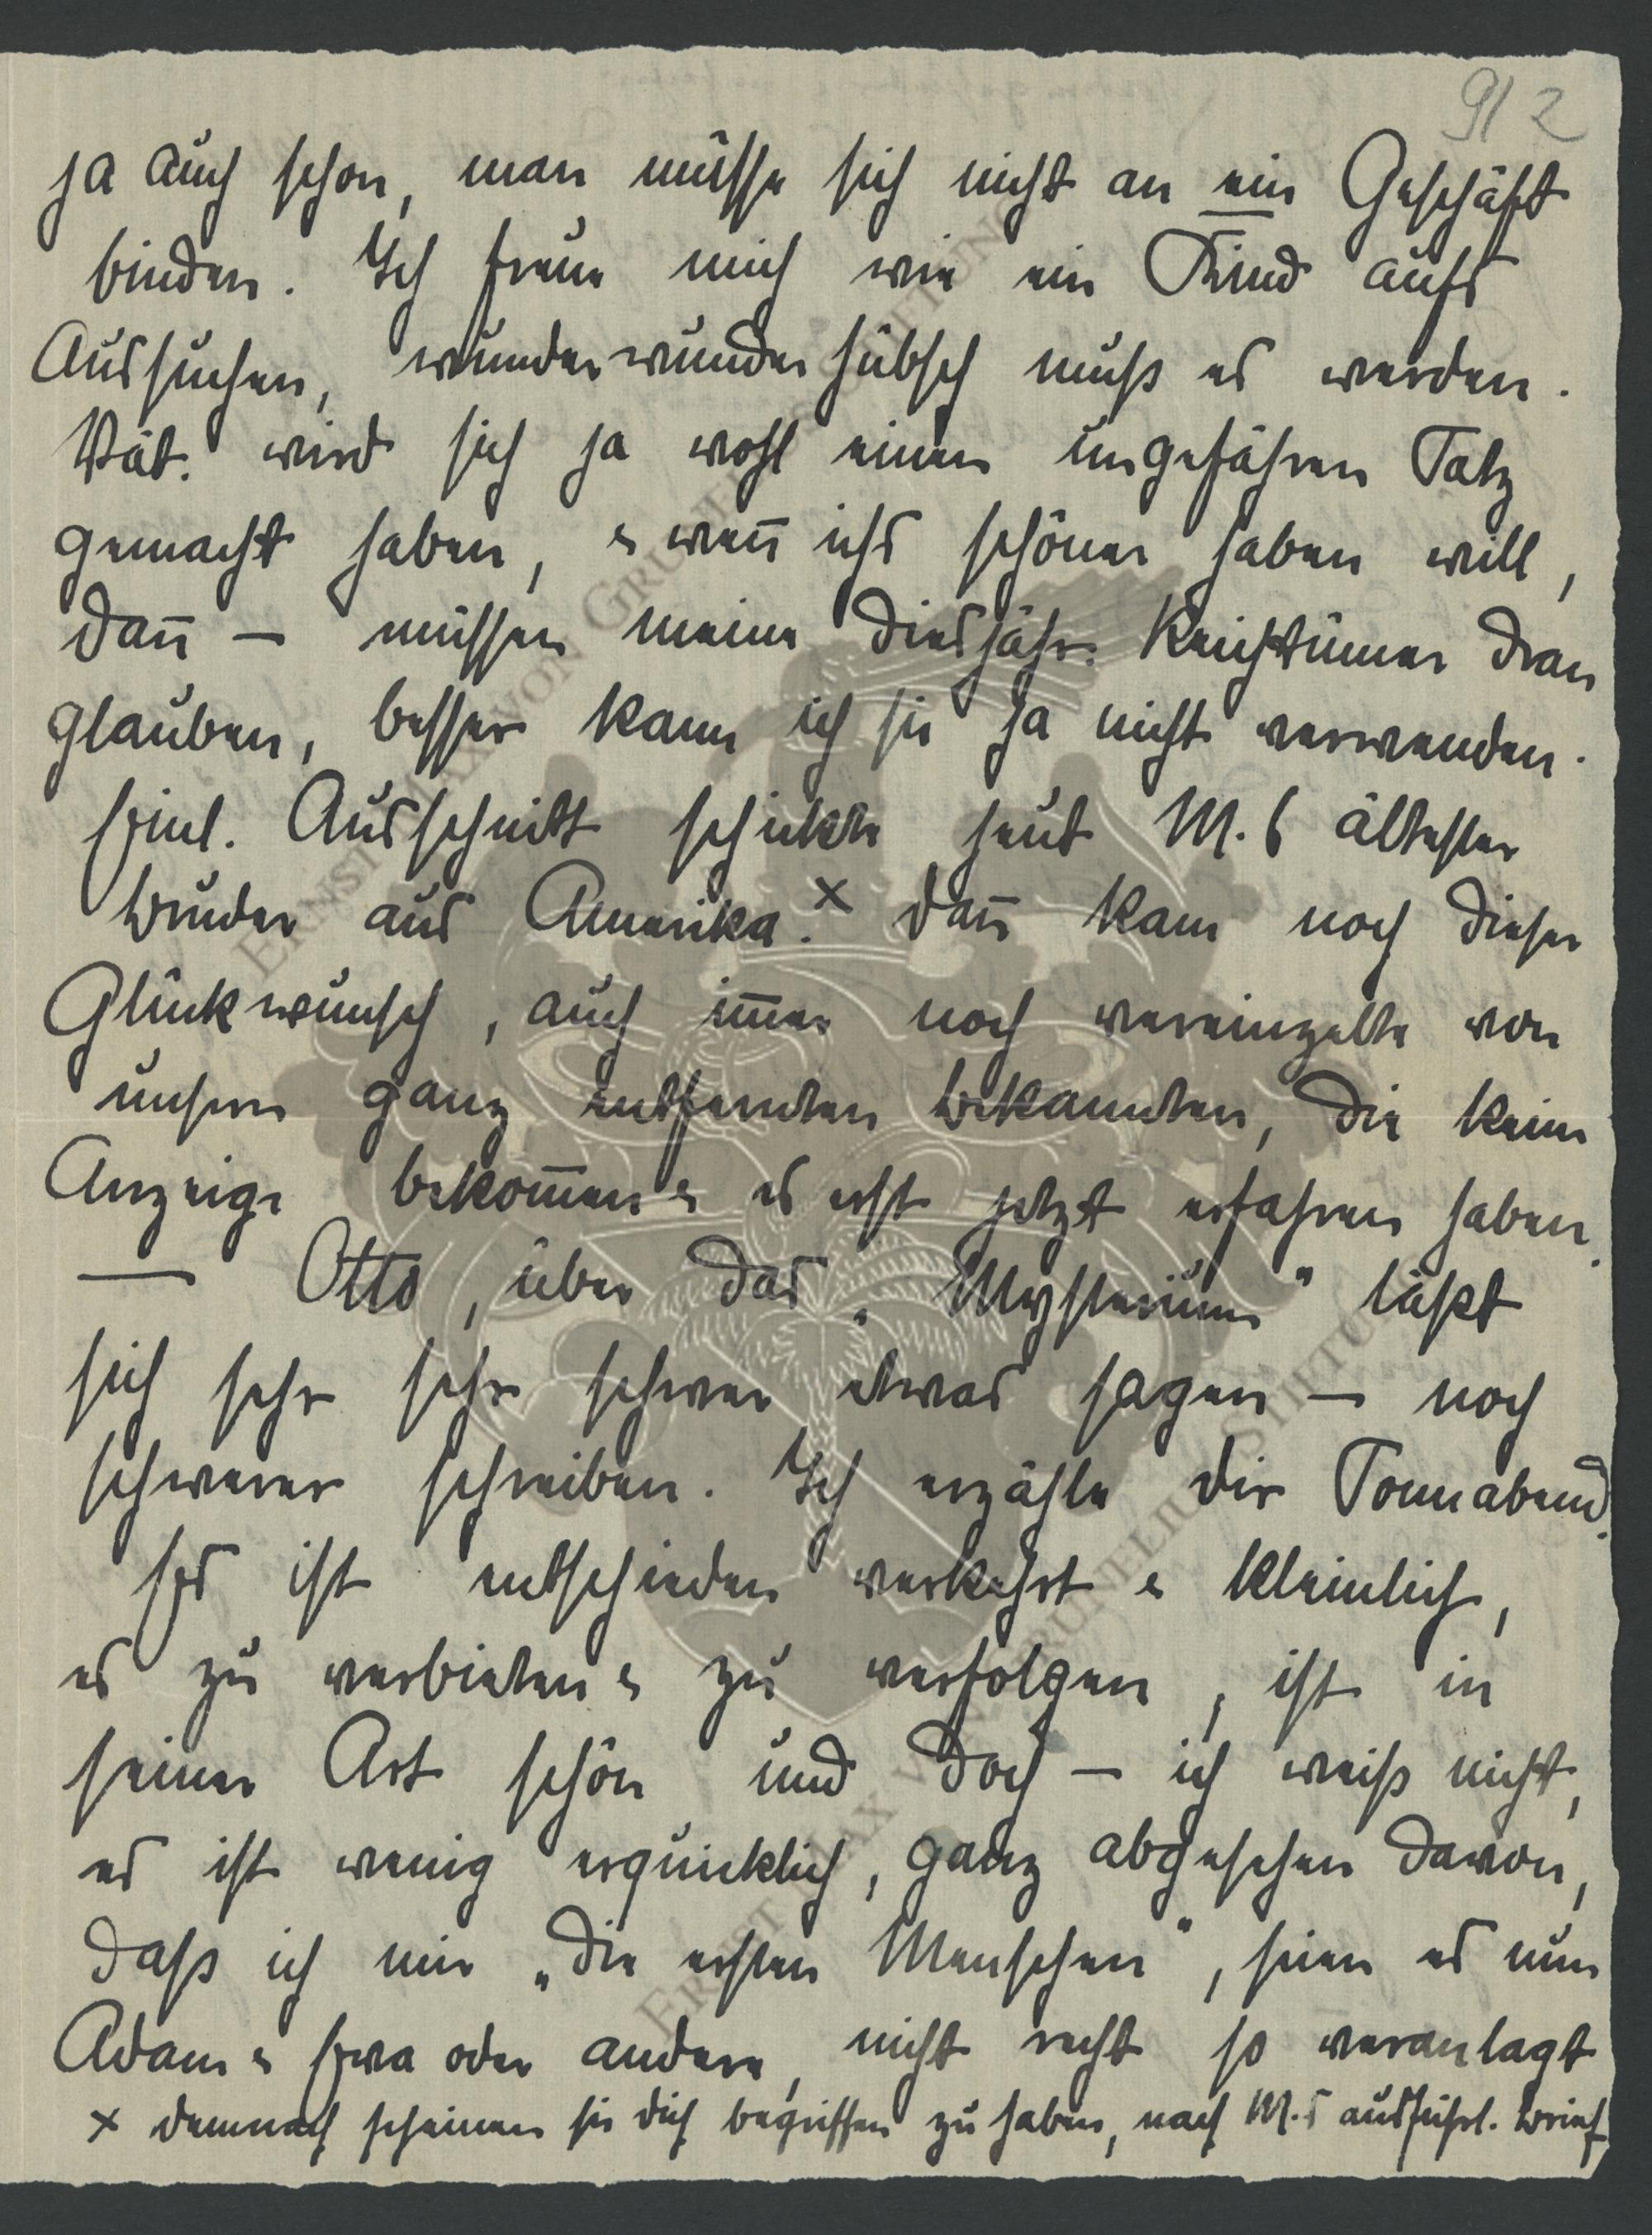 9/2
ja auch schon, man müsse sich nicht an ein Geschäft
binden. Ich freue mich wie ein Kind aufs
Aussuchen, wunderwunderhübsch muß es werden.
Vat. wird sich ja wohl einen ungefähren Satz
gemacht haben, & wen̅ ichs schöner haben will,
dan̅ – müssen meine diesjähr. Reichtümer dran
glauben, besser kann ich sie ja nicht verwenden.
Einl. Ausschnitt schickte heut M.s ältester
Bruder aus Amerika.× Dan̅ kam noch dieser
Glückwunsch, auch im̅er noch vereinzelte von
unsern ganz entfernten Bekannten, die keine
Anzeige bekom̅en & es erst jetzt erfahren haben.
— Otto, über das „Mysterium" läßt
sich sehr sehr schwer etwas sagen – noch
schwerer schreiben. Ich erzähle dir Sonnabend.
Es ist entschieden verkehrt & kleinlich,
es zu verbieten & zu verfolgen, ist in
seiner Art schön und doch – ich weiß nicht,
es ist wenig erquicklich, ganz abgesehen davon,
daß ich mir „die ersten Menschen", seien es nun
Adam & Eva oder andere, nicht recht so veranlagt
× demnach scheinen sie dich begriffen zu haben, nach M.s ausführl. Brief
ERNST MAX VON GRUNELIUS STIFTUNG
ERNST MAX VON GRUNELIUS STIFTUNG